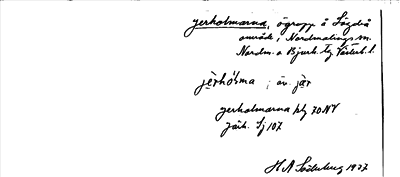 jerholmarna, ögrupp å Lögdeå
område, Nordmalings sn.
Nordm. o Bjurh. tg Västerb. l.
jèrhó̀ma ; äv. jàr
jerholmarna ktg 70 NV
järh. Sj 107
H A Söderberg 1927